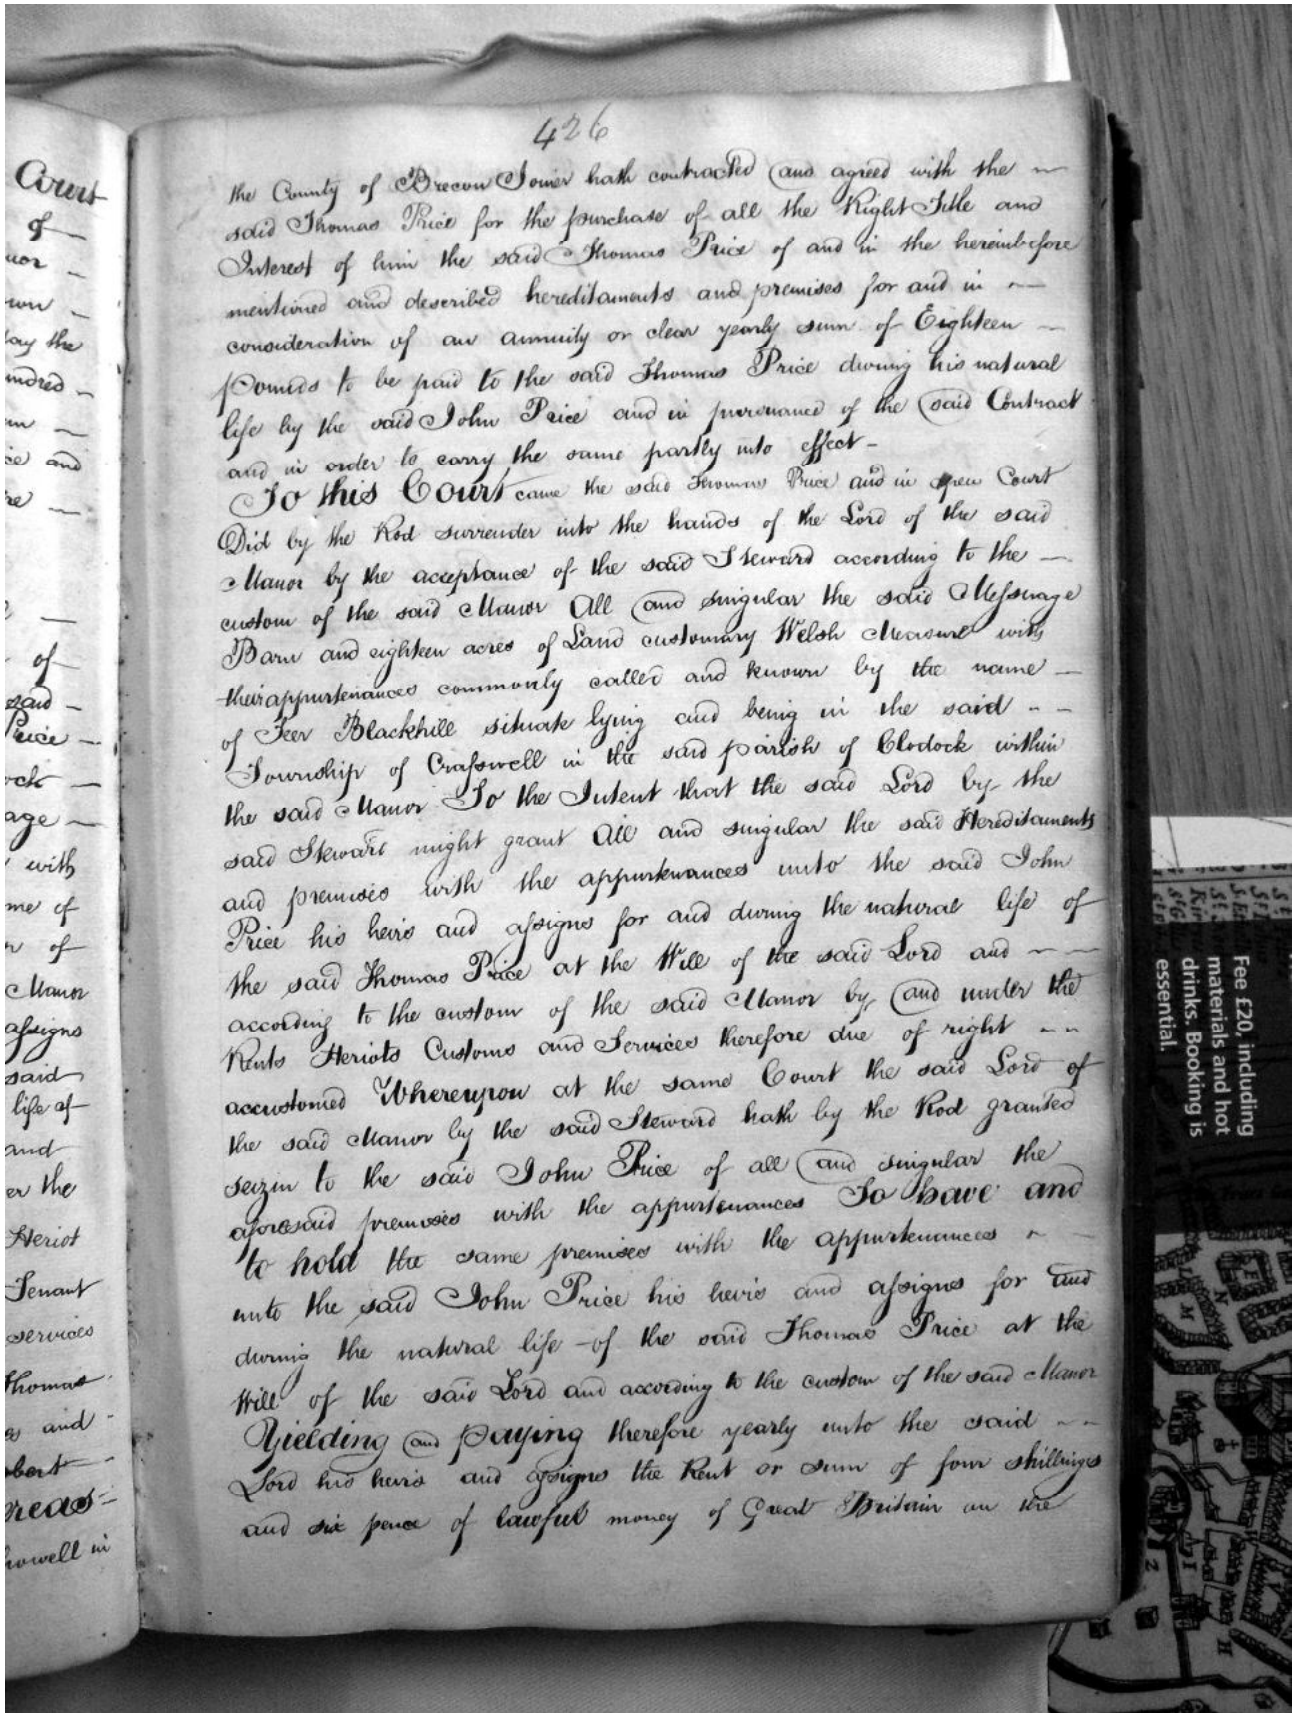 Court
of
nor
own
day the
undred
ce and
re
of
said
Price
ock
age
with
me of
r of
Manor
assigns
said
life of
and
er the
Heriot
Tenant
services
Thomas
es and
obert
ereas
howell in
426
the County of Brecon Joiner hath contracted and agreed with the
said Thomas Price for the purchase of all the Right Title and
Interest of him the said Thomas Price of and in the hereinbefore
mentioned and described hereditaments and premises for and in
consideration of an annuity or clear yearly sum of Eighteen
pounds to be paid to the said Thomas Price during his natural
life by the said John Price and in pursuance of the said Contract
and in order to carry the same partly into effect -
To this Court came the said Thomas Price and in open Court
Did by the Rod surrender into the hands of the Lord of the said
Manor by the acceptance of the said Steward according to the
custom of the said Manor All and singular the said Messuage
Barn and eighteen acres of Land customary Welsh Measure with
their appurtenances commonly called and known by the name
of Teer Blackhill situate lying and being in the said
Township of Crasswell in the said parish of Clodock within
the said Manor To the Intent that the said Lord by the
said Steward might grant All and singular the said Hereditaments
and premises with the appurtenances unto the said John
Price his heirs and assigns for and during the natural life of
the said Thomas Price at the Will of the said Lord and
according to the custom of the said Manor by and under the
Rents Heriots Customs and Services therefore due of right
accustomed Whereupon at the same Court the said Lord of
the said Manor by the said Steward hath by the Rod granted
seizin to the said John Price of all and singular the
aforesaid premises with the appurtenances To have and
to hold the same premises with the appurtenances
unto the said John Price his heirs and assigns for and
during the natural life of the said Thomas Price at the
Will of the said Lord and according to the custom of the said Manor
Yielding and paying therefore yearly unto the said
Lord his heirs and assigns the Rent or sum of four shillings
and six pence of lawful money of Great Britain on the
Fee £20, including
materials and hot
drinks. Booking is
essential.